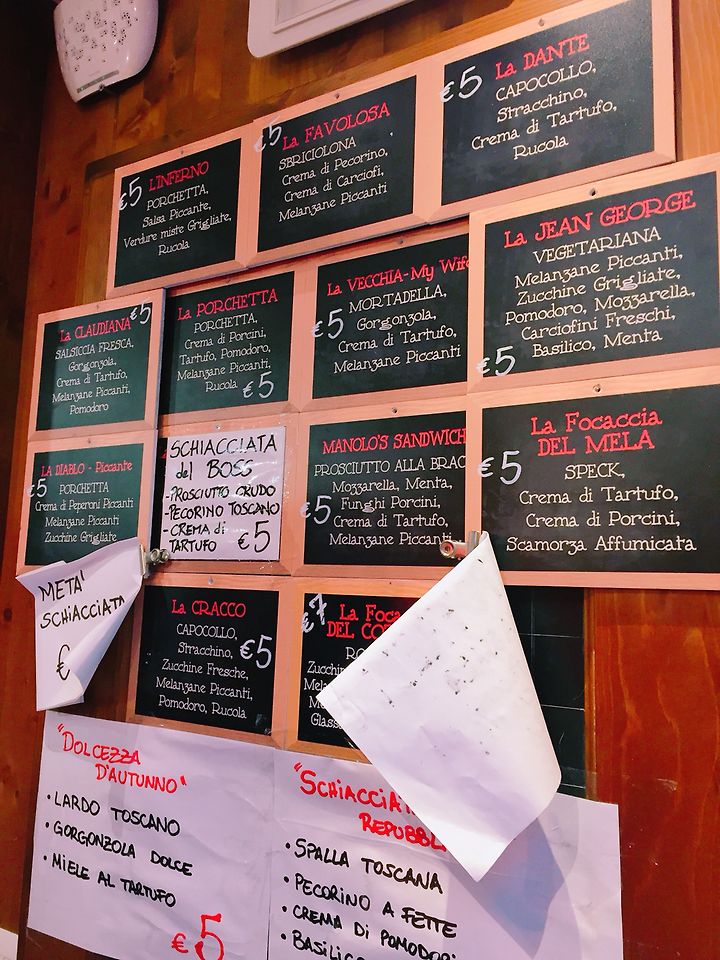 €5 L'INFERNO
PORCHETTA,
Salsa Piccante,
Verdure miste Grigliate,
Rucola
€5 La FAVOLOSA
SBRICIOLONA
Crema di Pecorino,
Crema di Carciofi,
Melanzane Piccanti
€5 La DANTE
CAPOCOLLO,
Stracchino,
Crema di Tartufo,
Rucola
La CLAUDIANA €5
SALSICCIA FRESCA,
Gorgonzola,
Crema di Tartufo,
Melanzane Piccanti,
Pomodoro
La PORCHETTA
PORCHETTA,
Crema di Porcini,
Tartufo, Pomodoro,
Melanzane Piccanti,
Rucola €5
La VECCHIA-My Wife
MORTADELLA,
€5 Gorgonzola,
Crema di Tartufo,
Melanzane Piccanti
La JEAN GEORGE
VEGETARIANA
Melanzane Piccanti,
Zucchine Grigliate,
Pomodoro, Mozzarella,
Carciofini Freschi,
€5 Basilico, Menta
LA DIABLO - Piccante
€5 PORCHETTA
Crema di Peperoni Piccanti
Melanzane Piccanti
Zucchine Grigliate
SCHIACCIATA
del BOSS
-PROSCIUTO CRUDO
-PECORINO TOSCANO
-CREMA di
TARTUFO €5
MANOLO'S SANDWICH
PROSCIUTTO ALLA BRAC
Mozzarella, Menta,
€5 Funghi Porcini,
Crema di Tartufo,
Melanzane Piccanti
La Focaccia
DEL MELA
€5 SPECK,
Crema di Tartufo,
Crema di Porcini,
Scamorza Affumicata
META'
SCHIACCIATA
€
La CRACCO
CAPOCOLLO,
Stracchino, €5
Zucchine Fresche,
Melanzane Piccanti,
Pomodoro, Rucola
€7 La Foca
DEL CO
Zucchin
"DOLCEZZA
D'AUTUNNO"
• LARDO TOSCANO
• GORGONZOLA DOLCE
• MIELE AL TARTUFO
€5
"SCHIACCIAT
REPUBBL
• SPALLA TOSCANA
• PECORINO A FETTE
• CREMA DI POMODORI
• BASILICO